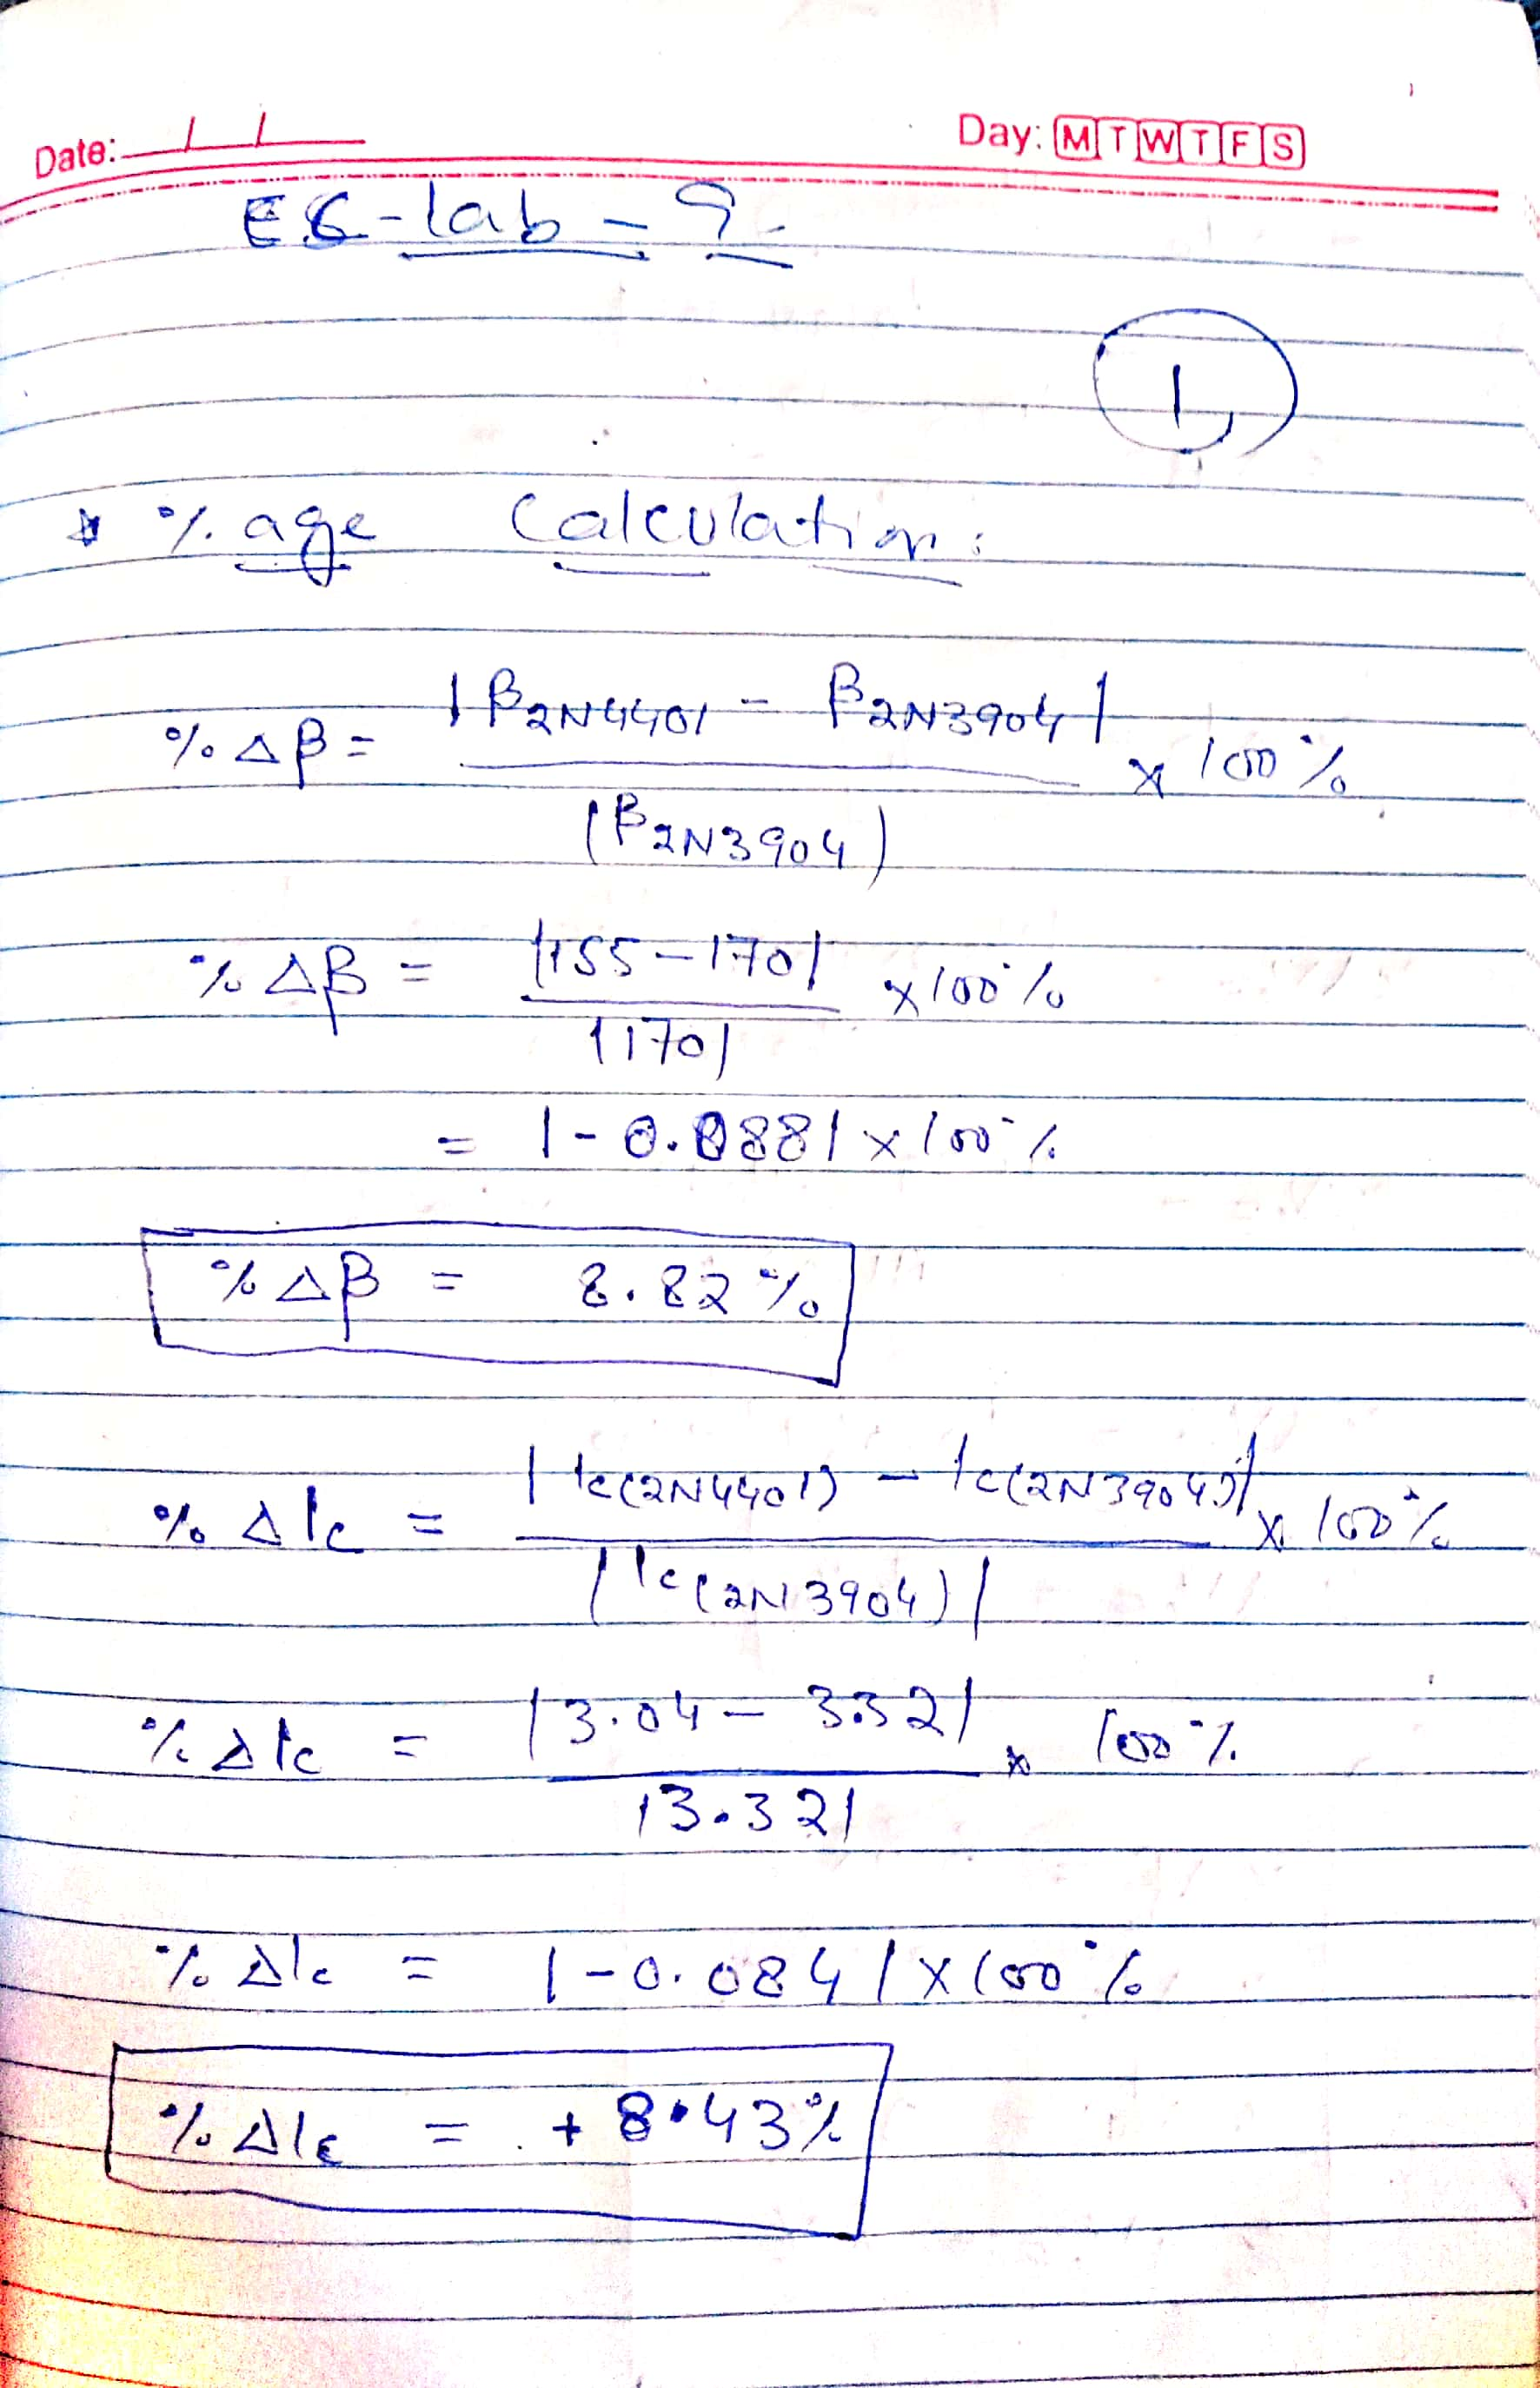 Date: / /
Day: M T W T F S
E.C - lab - 9
1
* %age Calculation:
%Δβ = |β2N4401 - β2N3904| x 100%
(β2N3904)
%Δβ = |155-170| x100%
|170|
= |-0.088| x 100%
%Δβ = 8.82%
%ΔIc = |Ic(2N4401) - Ic(2N3904)| x 100%
|Ic(2N3904)|
%ΔIc = |3.04 - 3.32| x 100%
|3.32|
%ΔIc = |-0.084| x 100%
%ΔIc = +8.43%